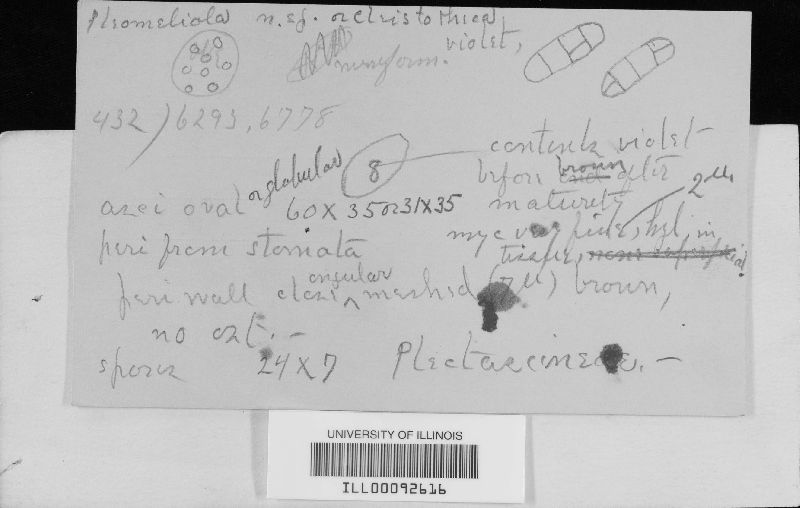 n. sp. or Cleistothecea
violet,
432) 6293, 6778
8
contents violet
before brown after
maturity
asci oval or globular 60 x 35 or 31 x 35
2 µ
peri from stomata
myc very fine, hyl, in
tissue, non superficial
peri wall close angular meshed (7 µ) brown,
no ost. -
spores 24 x 7 Plectascineae. -
UNIVERSITY OF ILLINOIS
ILL00092616